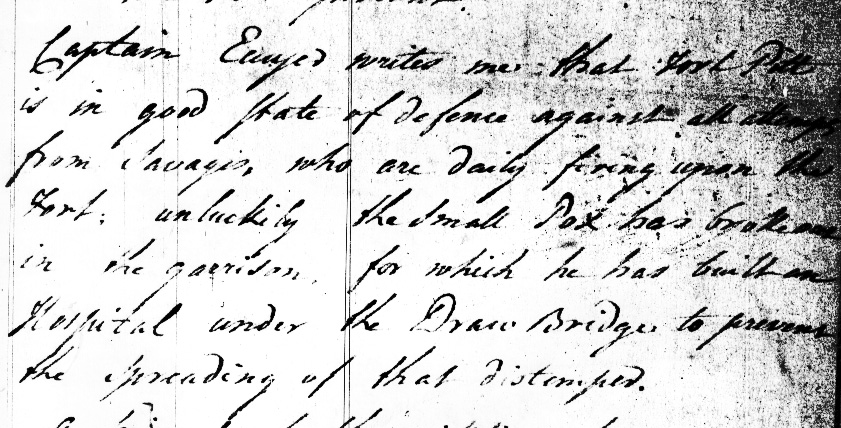 Captain Ecuyed writes me that Fort Pitt
is in good State of defence against all attempts
from Savages, who are daily firing upon the
Fort; unluckily the Small Pox has broke out
in the garrison, for which he has built an
Hospital under the Draw Bridge to prevent
the Spreading of that distemper.